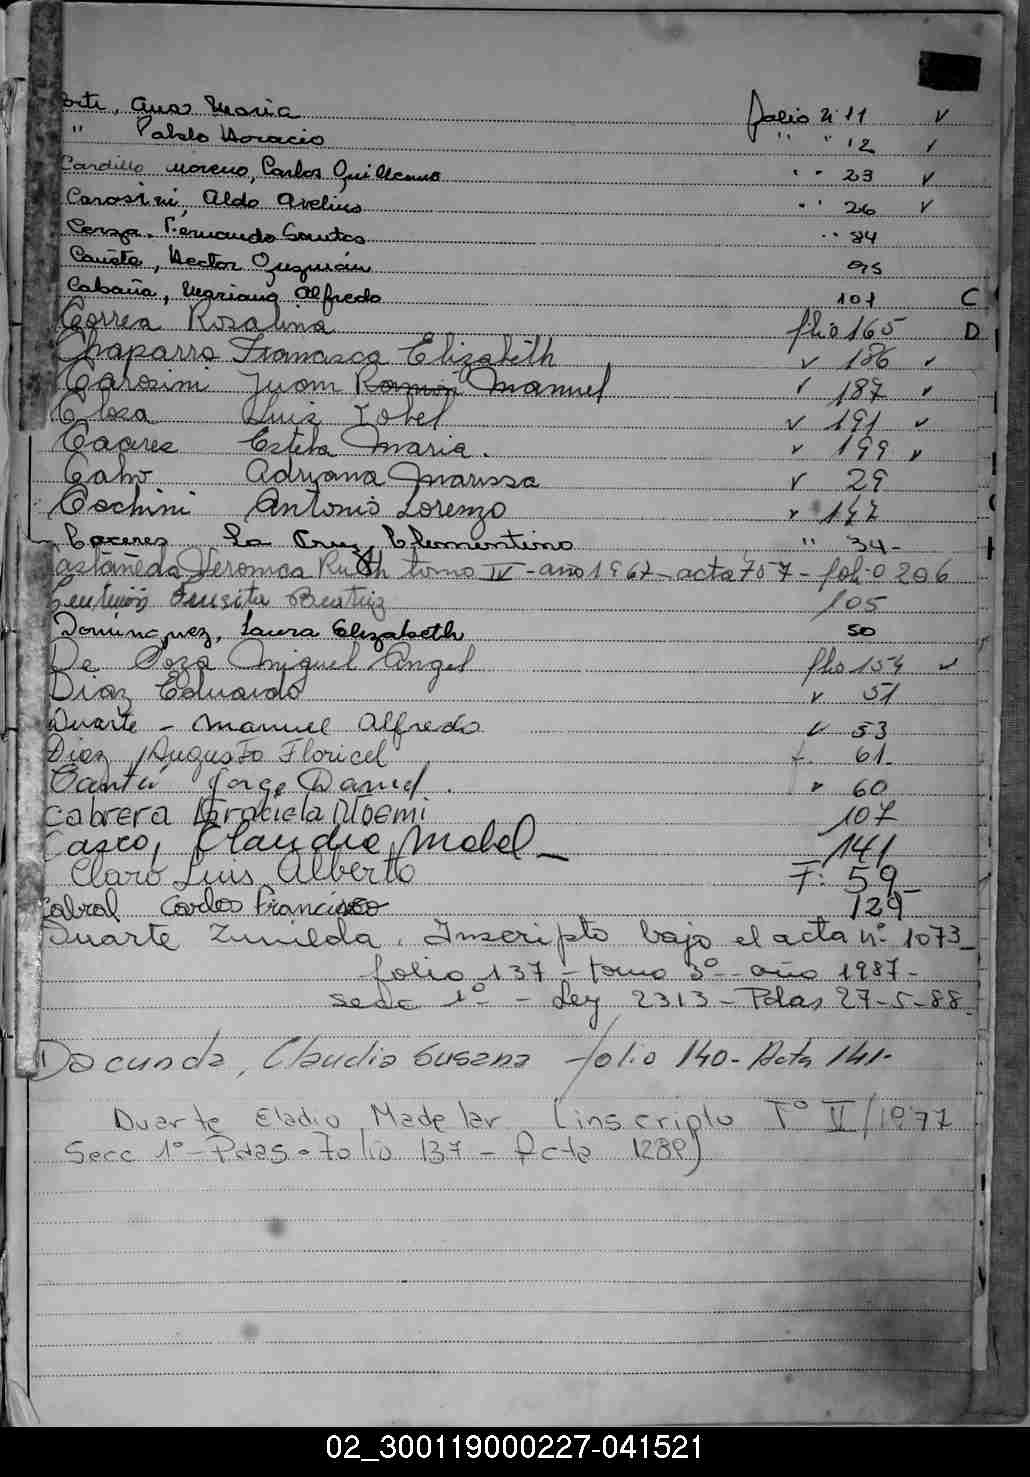 Ana Maria folio N 11 v
" Pablo Horacio " " 12 v
Cardillo Moreno, Carlos Guillermo " " 23 v
Carosini, Aldo Avelino " " 26 v
Fernando Santos " " 84
Cañete, Hector Guzmán 95
Cabaña, Mariano Alfredo 101 C
Correa Rosalina flio 165 D
Chaparro Francisca Elizabeth v 186 v
Carosini Juan Ramón Manuel v 187 v
Luis v 191 v
Caceres Estela Maria. v 199 v
Adryana Marissa v 29
Cochini Antonio Lorenzo v 147
Caceres La Cruz Clementino " 34-
Castañeda Veronica Ruth tomo IV - año 1967 - acta 707 - folio 206
Beatriz 105
Dominguez, Laura Elizabeth 50
De Miguel Angel flio 154 v
Diaz Eduardo v 51
Duarte - Manuel Alfredo v 53
Diaz Augusto Floricel f. 61
Cantú Jorge Daniel. v 60
Cabrera Graciela Noemi 107
Casco, Claudio Mabel - 141
Claro Luis Alberto F: 59-
Cabral Carlos Francisco 129
Duarte Zunilda. Inscripto bajo el acta n° 1073-
folio 137 - tomo 3° - año 1987-
secc 1° - Ley 2313 - Pdas 27-5-88.
Dacunda, Claudia Susana folio 140- Acta 141-
Duarte Eladio Madelar (inscripto T° II/1977
Secc 1° - Pdas - Folio 137 - Acta 1289)
02_300119000227-041521